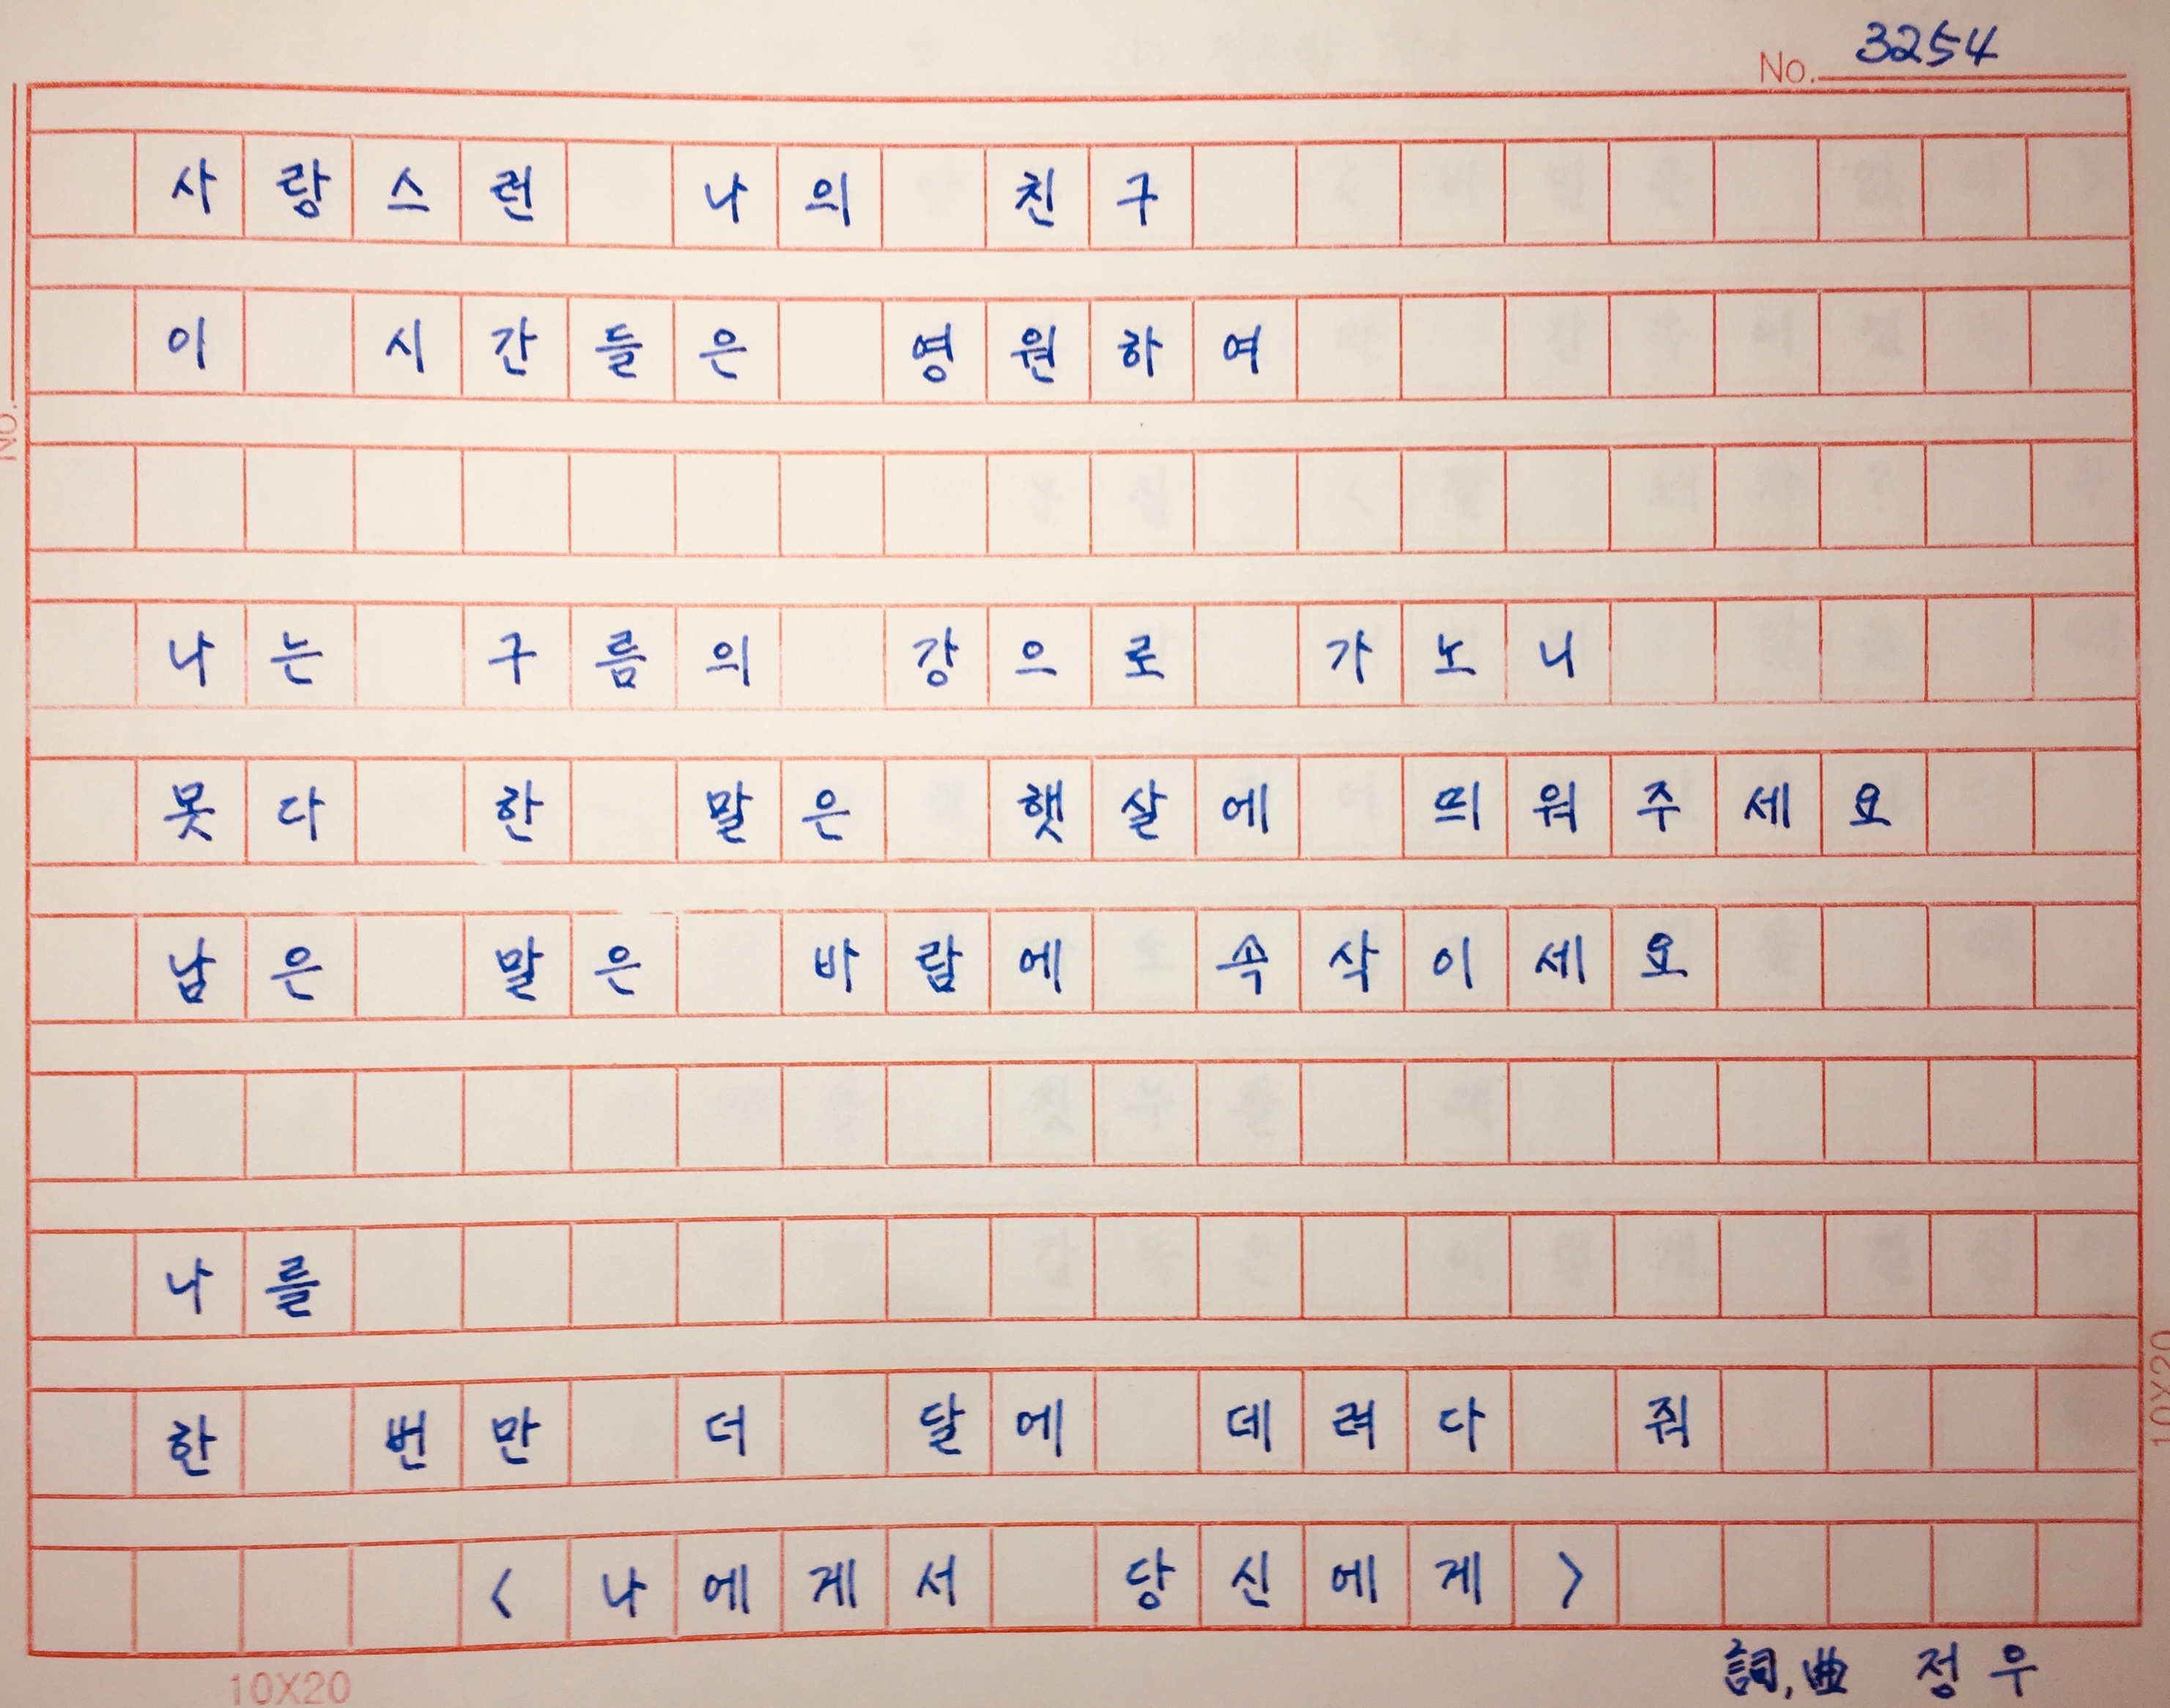 No. 3254
사랑스런 나의 친구
이 시간들은 영원하여
나는 구름의 강으로 가노니
못다 한 말은 햇살에 띄워주세요
남은 말은 바람에 속삭이세요
나를
한 번만 더 달에 데려다 줘
<나에게서 당신에게>
詞, 曲 정우
10X20
No.
10X20